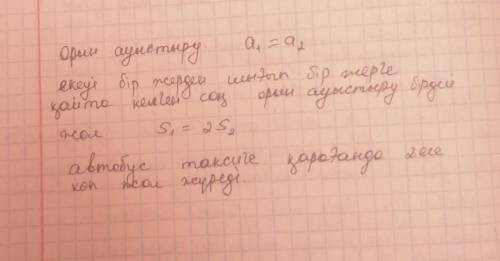 орын ауыстыру a₁ = a₂
екеуі бір жерден шығып бір жерге
қайта келген соң орын ауыстыру бірдей
жол S₁ = 2S₂
автобус таксиге қарағанда 2 есе
көп жол жүреді.